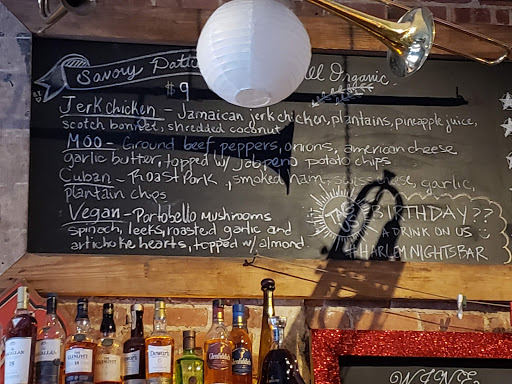 Savory Patt
All Organic
$9
Jerk chicken - Jamaican jerk chicken, plantains, pineapple juice,
scotch bonnet, shredded coconut
Moo - Ground beef, peppers, onions, american cheese
garlic butter, topped w/ Jalapeno potato chips
Cuban - Roast Pork, smoked ham, swiss cheese, garlic,
plantain chips
Vegan - Portobello Mushrooms
spinach, leeks, roasted garlic and
artichoke hearts, topped w/ almond
BIRTHDAY??
A DRINK ON US
HARLEMNIGHTSBAR
WINE